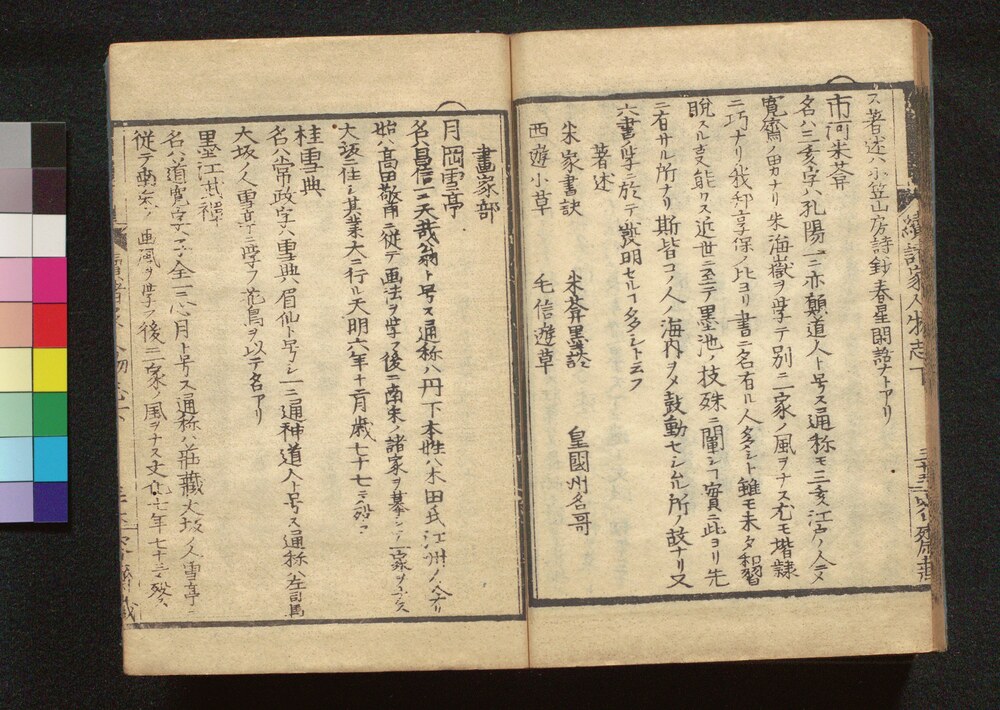 續諸家人物志下
ス著述ハ小笠山房詩鈔春星閣詩ナトアリ
市河米菴
名ハ三亥字ハ孔陽一ニ亦顛道人ト号ス通称モ三亥江戸ノ人ニメ
寛齋ノ男ナリ米海嶽ヲ學テ別ニ一家ノ風ヲナス尤モ楷隷
ニ巧ナリ我邦享保ノ比ヨリ書ニ名有ル人多シト雖モ未タ和習
脱スル支能ワス近世ニ至テ墨池ノ技殊ニ闡シ實ニ此ヨリ先
ニ有サル所ナリ斯皆コノ人ノ海内ヲメ鼓動セシムル所ノ故ナリ又
六書ノ學ニ於テ發明セルヿ多シト云フ
著述
米家書訣 米菴墨談 皇國州名哥
西遊小草 毛信遊草
畫家部
月岡雪亭
名ハ昌信一ニ天哉翁ト号ス通称ハ丹下本姓ハ木田氏江州ノ人ナリ
始ハ高田敬甫ニ從テ画法ヲ學フ後ニ南宋ノ諸家ヲ慕シ一家ヲナス
大坂ニ住シ其業大ニ行ル天明六年十二月歳七十七ニテ殁ス
桂雪典
名ハ常政字ハ雪典眉仙ト号シ一ニ通神道人ト号ス通称ハ左司馬
大坂ノ人雪亭ニ學フ花鳥ヲ以テ名アリ
墨江武禪
名ハ道寛字ハ子全一ニ心月ト号ス通称ハ荘藏大坂ノ人雪亭ニ
從テ画風ヲ學フ後ニ一家ノ風ヲナス文化七年七十三ニ殁ス